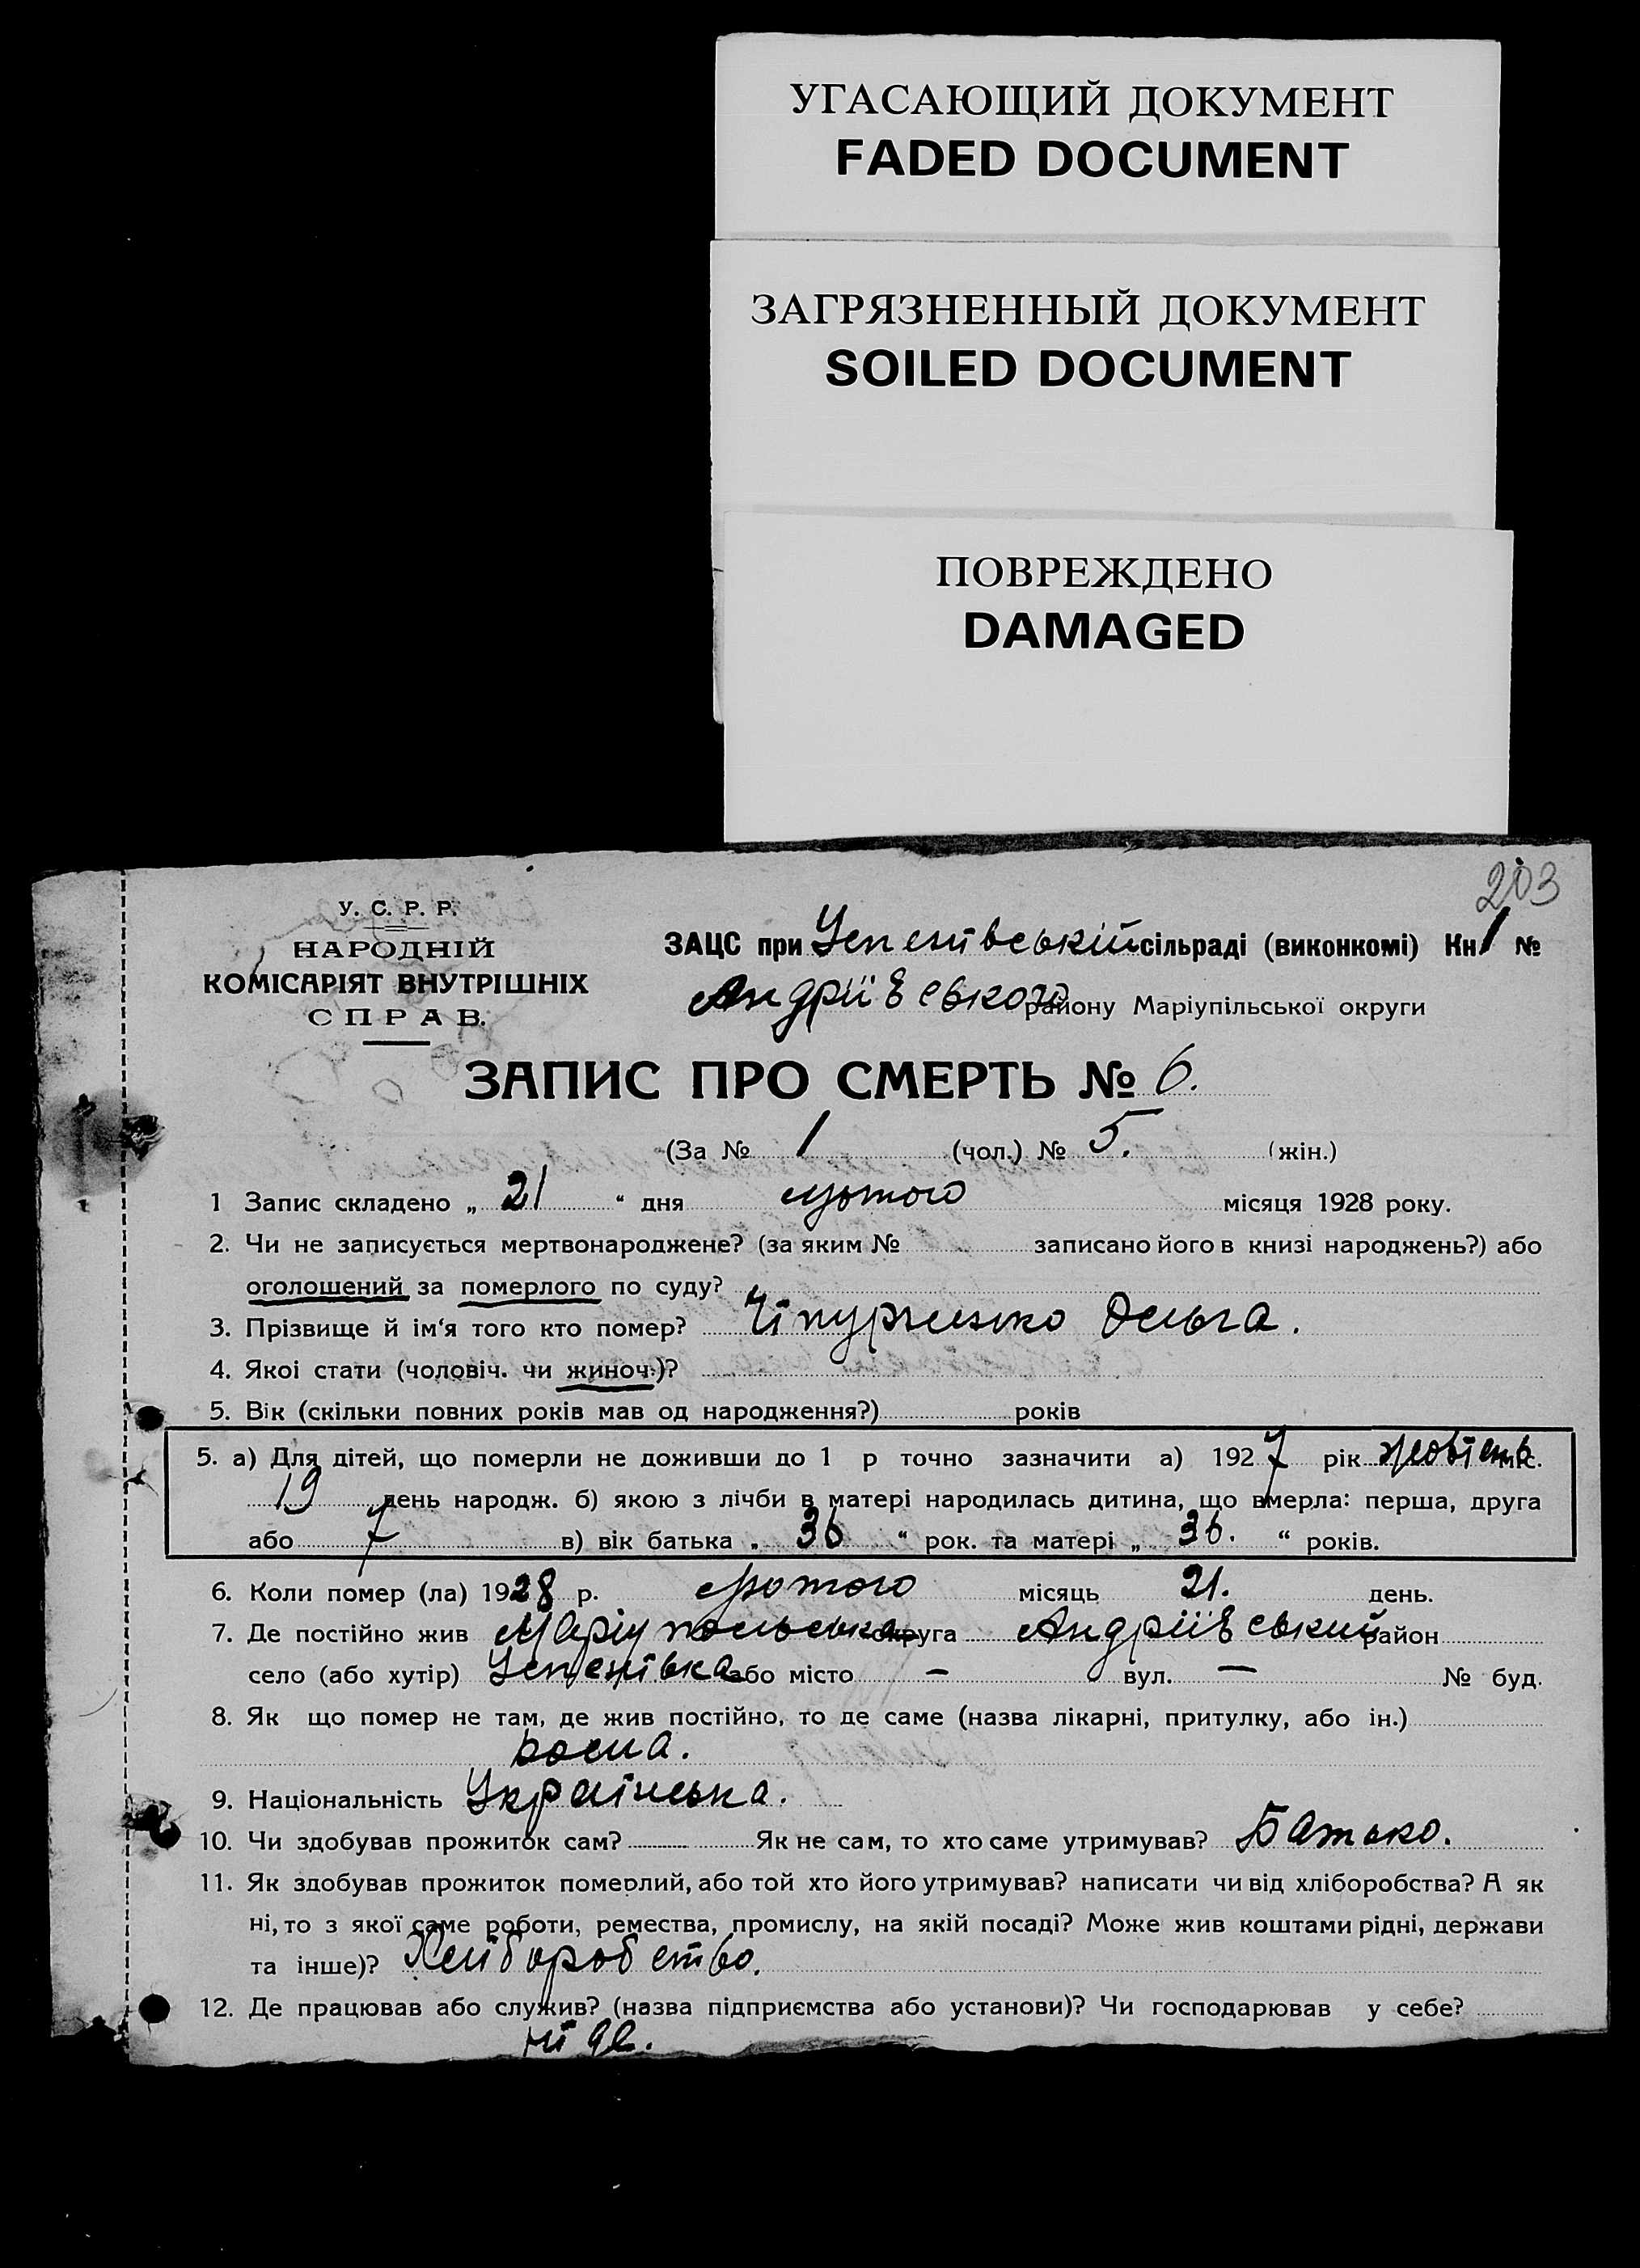 УГАСАЮЩИЙ ДОКУМЕНТ
FADED DOCUMENT
ЗАГРЯЗНЕННЫЙ ДОКУМЕНТ
SOILED DOCUMENT
ПОВРЕЖДЕНО
DAMAGED
203
У. С. Р. Р.
НАРОДНІЙ
КОМІСАРІЯТ ВНУТРІШНІХ
СПРАВ.
ЗАЦС при Успенівській сільраді (виконкомі) Кн 1 №
Андріївського району Маріупільської округи
ЗАПИС ПРО СМЕРТЬ № 6.
(За № 1 (чол.) № 5. (жін.)
1 Запис складено „ 21 “ дня лютого місяця 1928 року.
2. Чи не записується мертвонароджене? (за яким № записано його в книзі народжень?) або
оголошений за померлого по суду?
3. Прізвище й ім‘я того кто помер? Ольга.
4. Якоі стати (чоловіч. чи жиноч.)?
5. Вік (скільки повних років мав од народження?) років
5. а) Для дітей, що померли не доживши до 1 р точно зазначити а) 1927 рік жовтень міс.
19 день народж. б) якою з лічби в матері народилась дитина, що вмерла: перша, друга
або 7 в) вік батька „ 36 “ рок. та матері „ 36. “ років.
6. Коли помер (ла) 1928 р. лютого місяць 21. день.
7. Де постійно жив Маріупольська округа Андріївський район
село (або хутір) Успенівка або місто – вул. – № буд.
8. Як що помер не там, де жив постійно, то де саме (назва лікарні, притулку, або ін.)
9. Національність Українська.
10. Чи здобував прожиток сам? Як не сам, то хто саме утримував? Батько.
11. Як здобував прожиток померлий, або той хто його утримував? написати чи від хліборобства? А як
ні, то з якої саме роботи, ремества, промислу, на якій посаді? Може жив коштами рідні, держави
та інше)? Хліборобство.
12. Де працював або служив? (назва підприємства або установи)? Чи господарював у себе?
ніде.